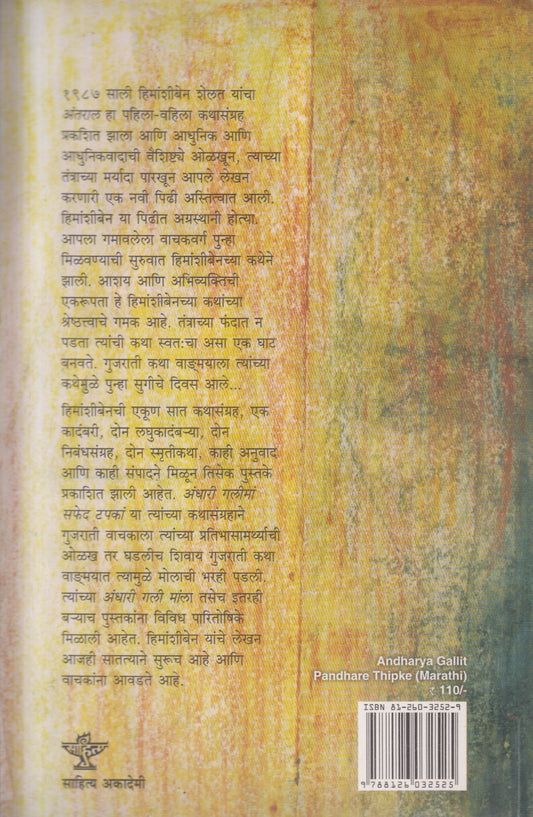 १९८७ साली हिमांशीबेन शेलत यांचा
अंतराल हा पहिला-वहिला कथासंग्रह
प्रकशित झाला आणि आधुनिक आणि
आधुनिकवादाची वैशिष्ट्ये ओळखून, त्याच्या
तंत्राच्या मर्यादा पारखून आपले लेखन
करणारी एक नवी पिढी अस्तित्वात आली.
हिमांशीबेन या पिढीत अग्रस्थानी होत्या.
आपला गमावलेला वाचकवर्ग पुन्हा
मिळवण्याची सुरुवात हिमांशीबेनच्या कथेने
झाली. आशय आणि अभिव्यक्तिची
एकरूपता हे हिमांशीबेनच्या कथांच्या
श्रेष्ठत्त्वाचे गमक आहे. तंत्राच्या फंदात न
पडता त्यांची कथा स्वतःचा असा एक घाट
बनवते. गुजराती कथा वाङ्मयाला त्यांच्या
कथेमुळे पुन्हा सुगीचे दिवस आले...
हिमांशीबेनची एकूण सात कथासंग्रह, एक
कादंबरी, दोन लघुकादंबऱ्या, दोन
निबंधसंग्रह, दोन स्मृतीकथा, काही अनुवाद
आणि काही संपादने मिळून तिसेक पुस्तके
प्रकाशित झाली आहेत. अंधारी गलीमां
सफेद टपकां या त्यांच्या कथासंग्रहाने
गुजराती वाचकाला त्यांच्या प्रतिभासामर्थ्याची
ओळख तर घडलीच शिवाय गुजराती कथा
वाङ्मयात त्यामुळे मोलाची भरही पडली.
त्यांच्या अंधारी गली मांला तसेच इतरही
बऱ्याच पुस्तकांना विविध पारितोषिके
मिळाली आहेत. हिमांशीबेन यांचे लेखन
आजही सातत्याने सुरूच आहे आणि
वाचकांना आवडते आहे.
Andharya Gallit
Pandhare Thipke (Marathi)
₹ 110/-
ISBN 81-260-3252-9
9 788126 032525
साहित्य
साहित्य अकादेमी